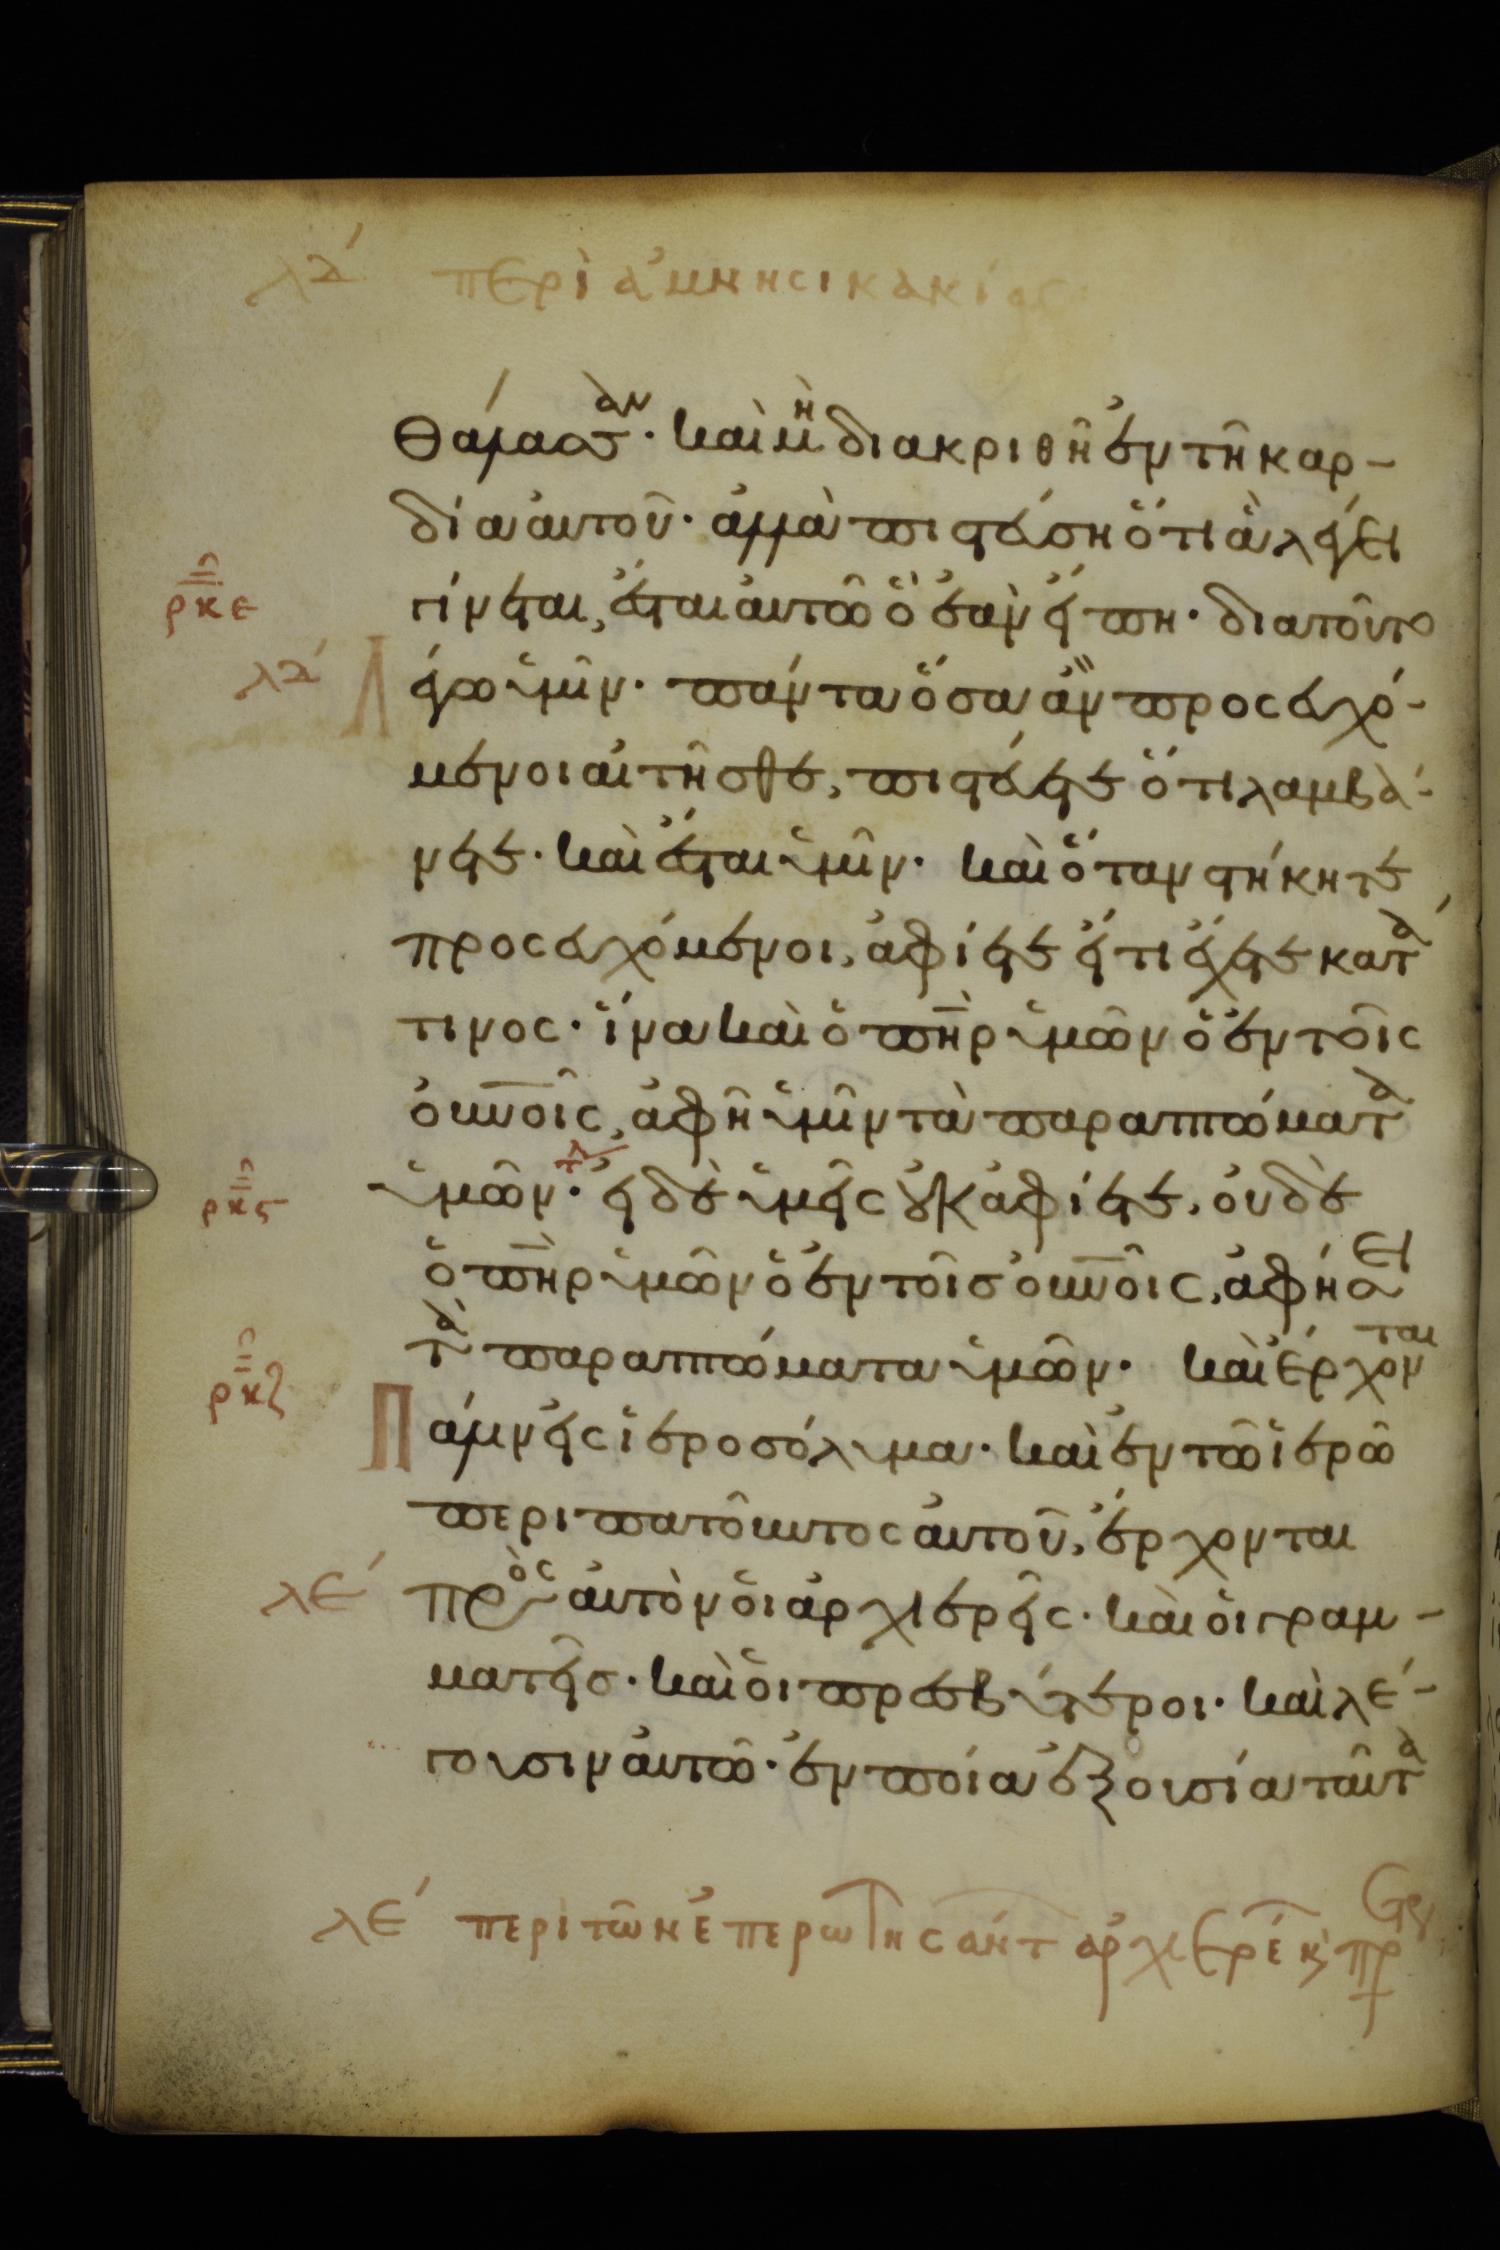 λδ´ περὶ ἀμνησικακίας
θάλασσαν· καὶ μὴ διακριθῆ ἐν τῆ καρ-
δία αὐτοῦ· ἀλλὰ πιστεύση ὅτι ἃ λέγει
ρκε γίνεται, ἔσται αὐτῶ ὃ ἐὰν εἴπη· διατοῦτο
λδ´ Λέγω ὑμῖν· πάντα ὅσα ἂν προσευχό-
μενοι αἰτῆσθε, πιστεύετε ὅτι λαμβά-
νετε· καὶ ἔσται ὑμῖν· καὶ ὅταν στήκητε
προσευχόμενοι, ἀφίετε εἴ τι ἔχετε κατά
τινος· ἵνα καὶ ὁ πὴρ ὑμῶν ὁ ἐν τοῖς
οὐνοῖς, ἀφῆ ὑμῖν τὰ παραπτώματα
ρκς ὑμῶν· εἰ δὲ ὑμεῖς οὐκ ἀφίετε, οὐδὲ
ὁ πὴρ ὑμῶν ὁ ἐν τοῖσ οὐνοῖς, ἀφήσει
τὰ παραπτώματα ὑμῶν· καὶ ἔρχονται
ρκζ Πάλιν εἰς ἱεροσόλυμα· καὶ ἐν τῶ ἱερῶ
περιπατοῦντος αὐτοῦ, ἔρχονται
λε´ πρὸς αὐτὸν οἱ ἀρχιερεῖς· καὶ οἱ γραμ-
ματεῖσ· καὶ οἱ πρεσβύτεροι· καὶ λέ-
γουσιν αὐτῶ· ἐν ποία ἐξουσία ταῦτα
λε´ περὶ τῶν ἐπερωτησάντ ἀρχιερέ κ πρ